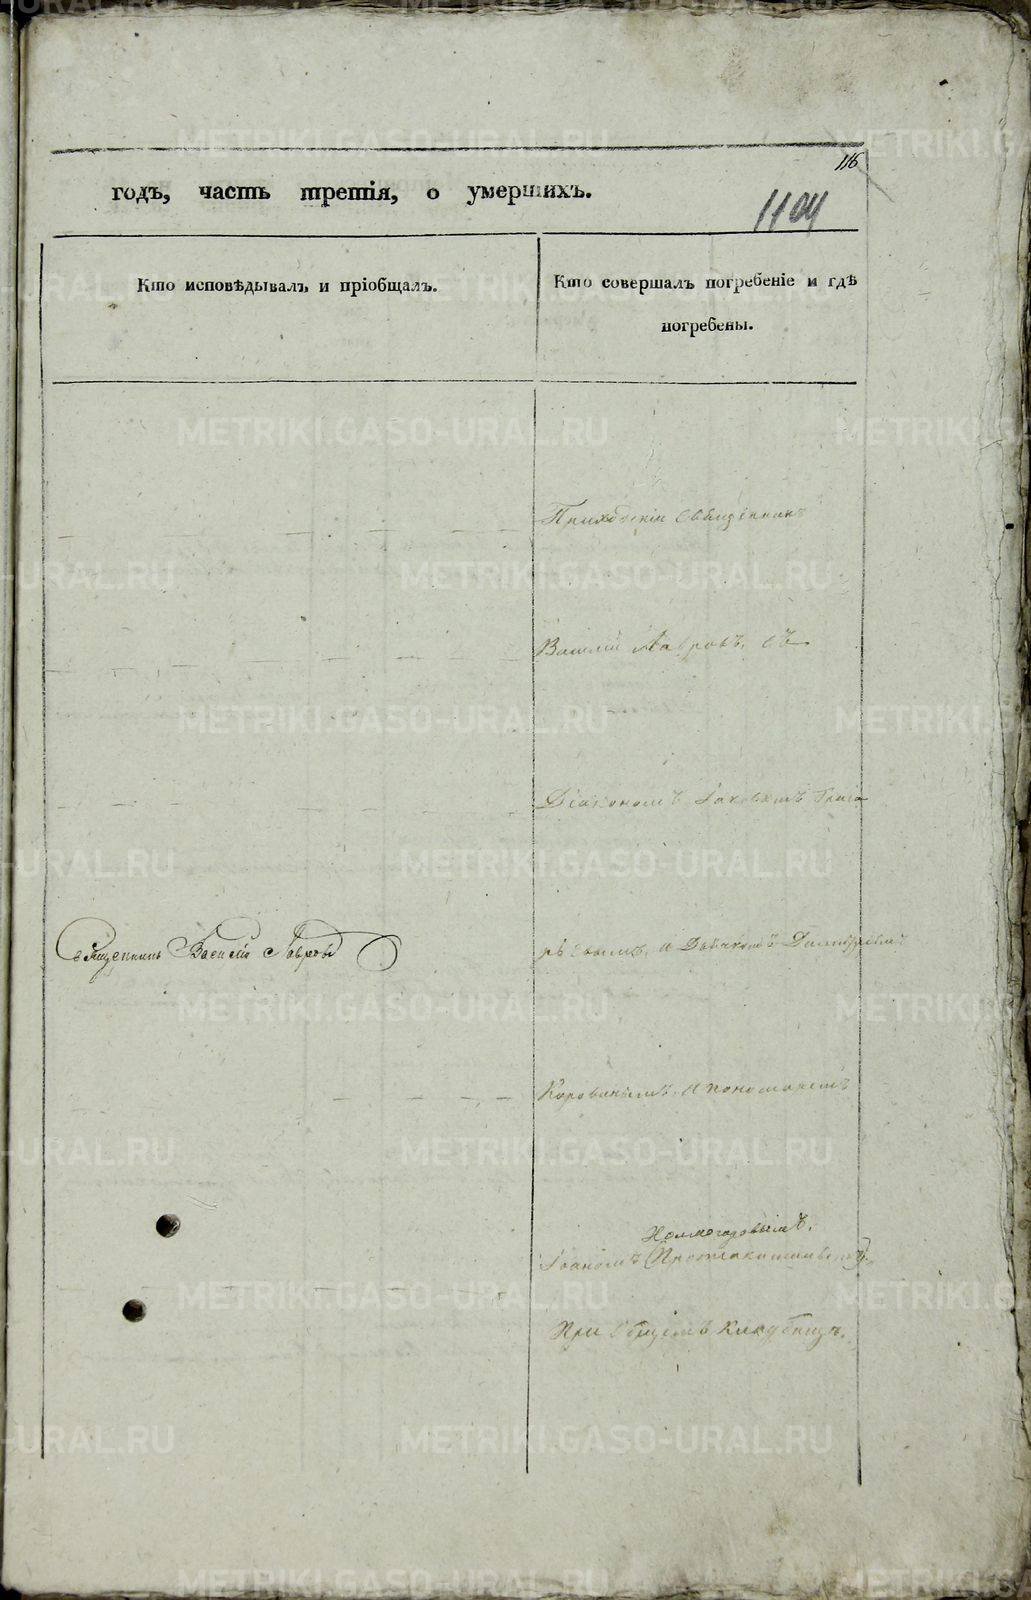 116
годъ, часть третія, о умершихъ.
1104
Кто исповѣдывалъ и пріобщалъ.
Кто совершалъ погребеніе и гдѣ
погребены.
Священникъ Василій Лавровъ
Приходскій Священникъ
Василій Лавровъ, съ
Діакономъ Іаковомъ Григо
рьевымъ, и Дьячкомъ Димитріемъ
Коровинымъ, и пономаремъ
Холмогоровымъ.
Іоаномъ
При Общемъ Кладбищѣ.
METRIKI.GASO-URAL.RU